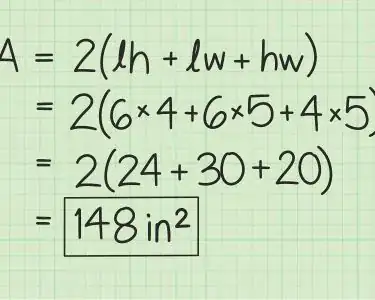 A = 2(lh + lw + hw)
= 2(6×4+6×5+4×5)
= 2(24 + 30 + 20)
= 148 in²